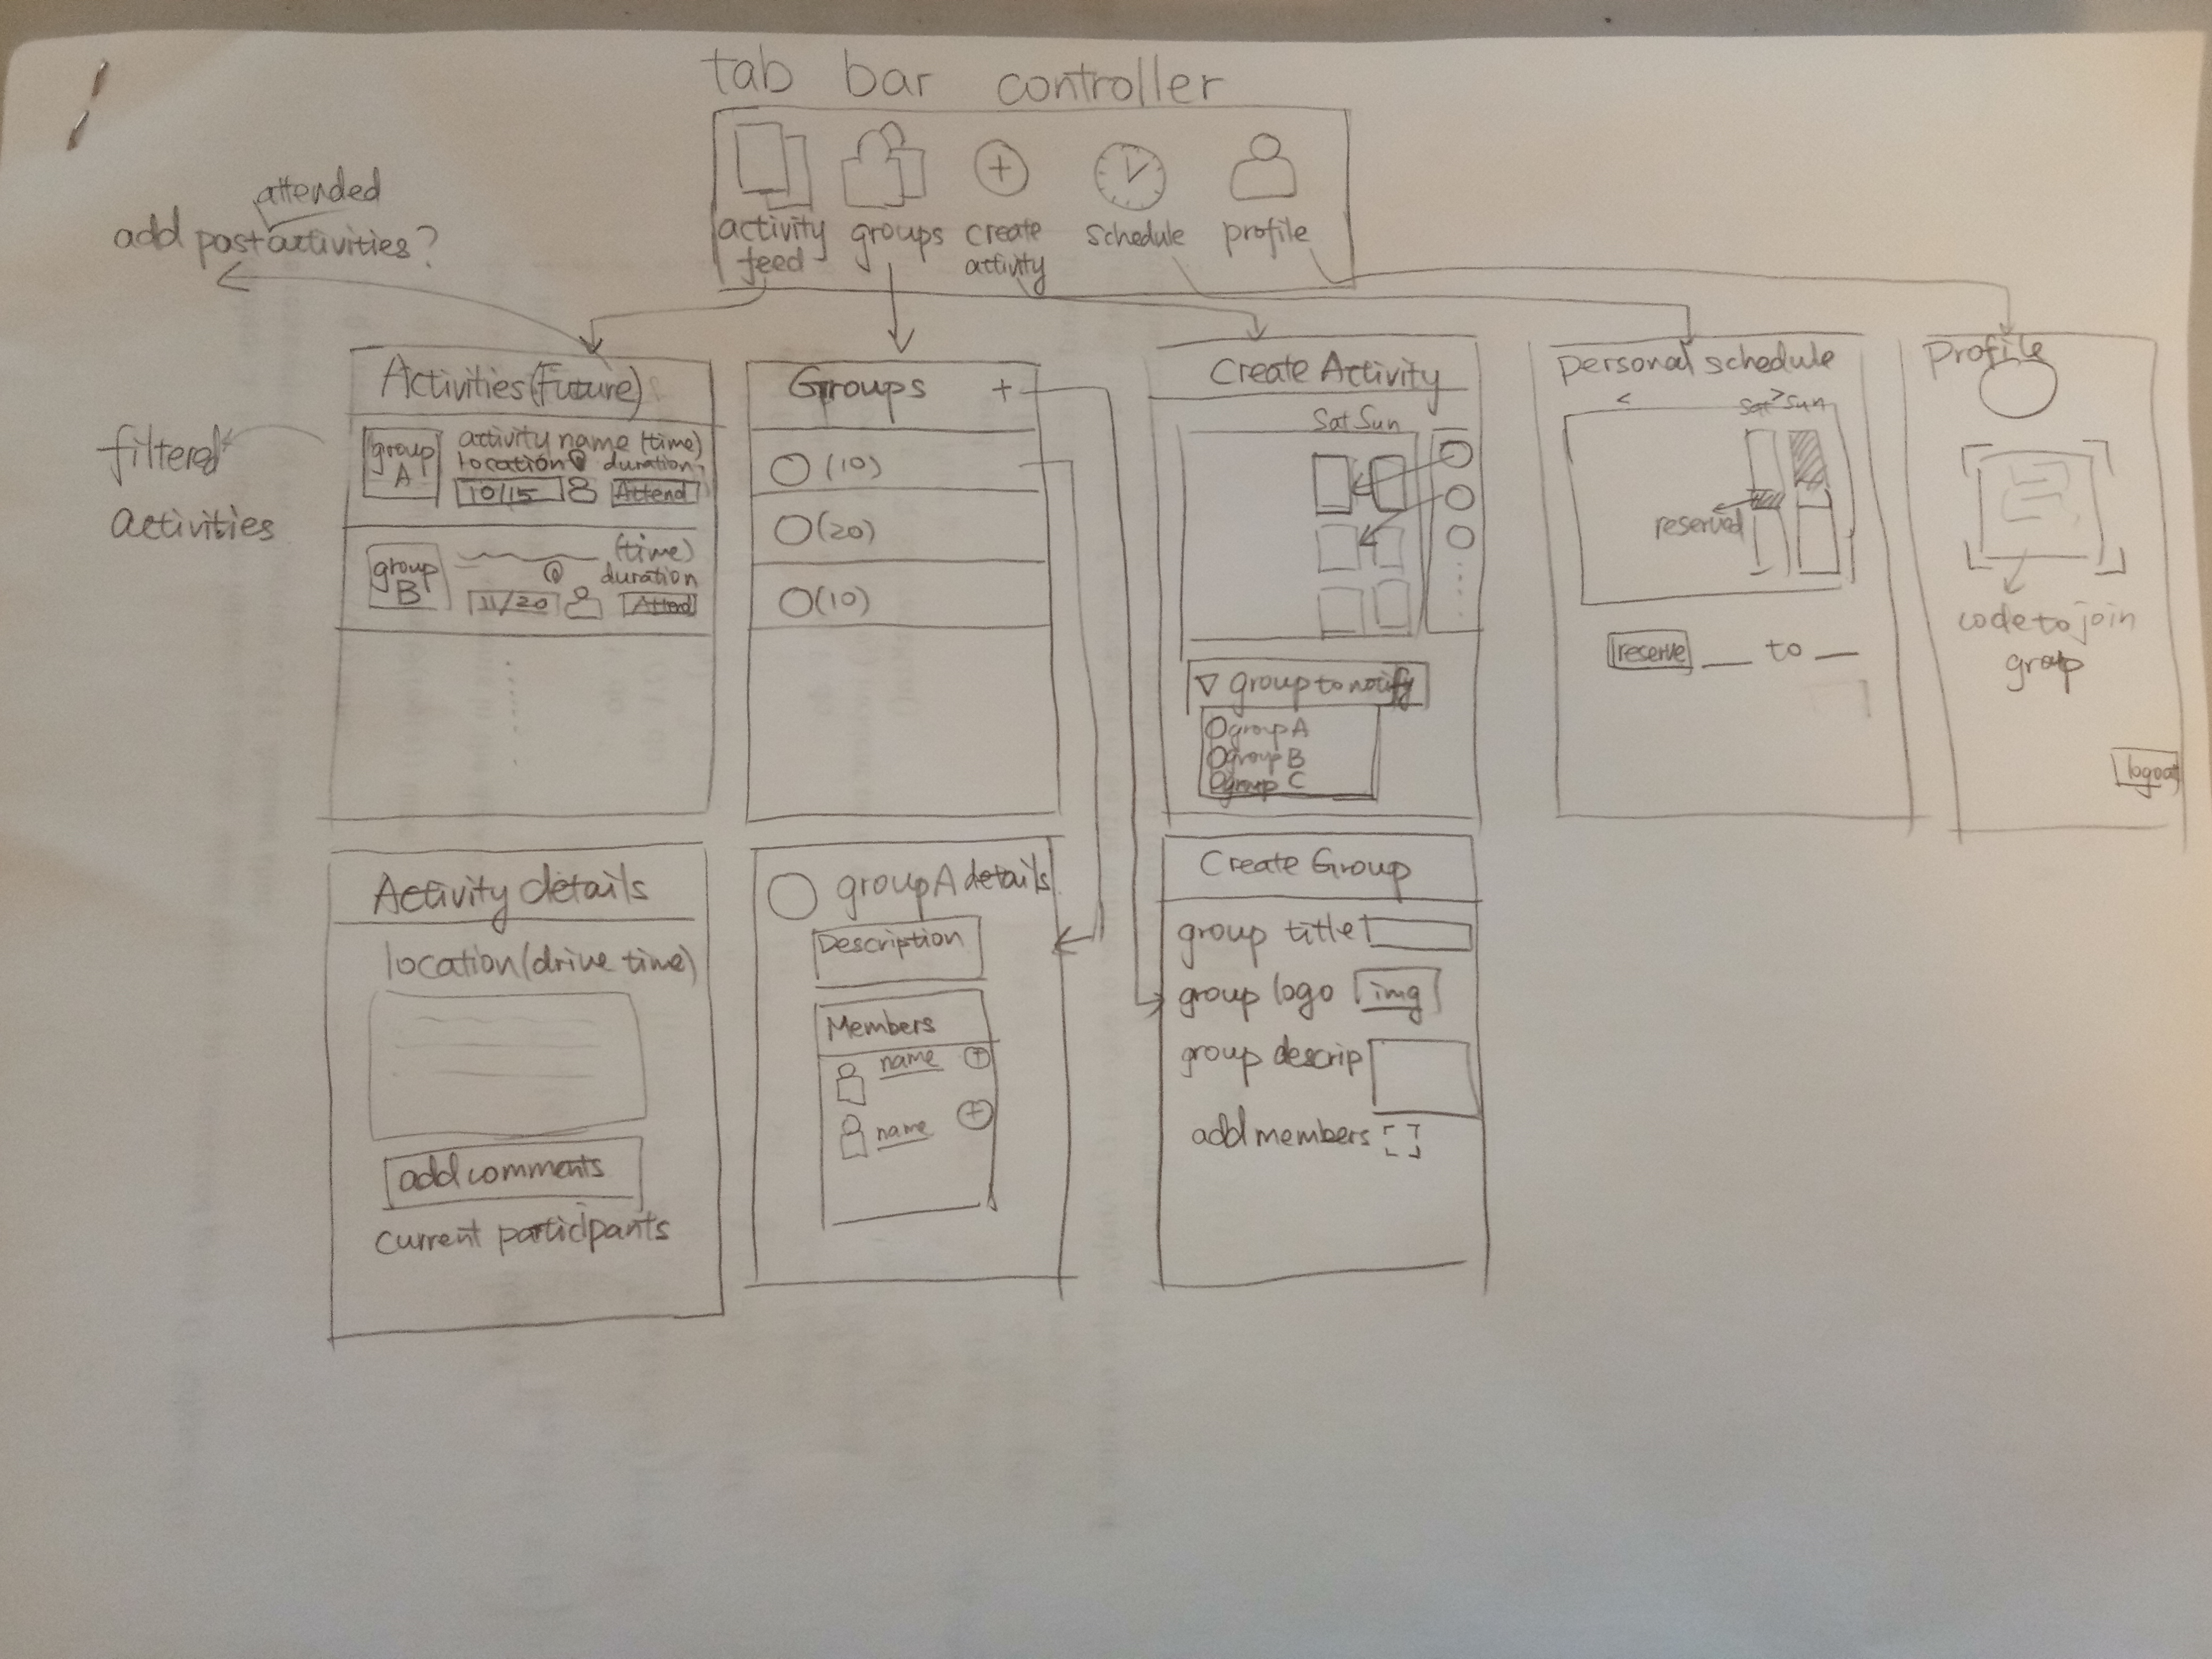 tab bar controller
activity feed
groups
create activity
schedule
profile
attended
add past activities?
filtered
activities
Activities (Future)
group A
activity name (time)
location duration
10/15
Attend
group B
(time)
duration
11/20
Attend
Groups +
(10)
(20)
(10)
Create Activity
Sat Sun
group to notify
group A
group B
group C
personal schedule
< >
Sat Sun
reserved
reserve __ to __
Profile
code to join
group
logout
Activity details
location (drive time)
add comments
current participants
group A details
Description
Members
name +
name +
Create Group
group title
group logo img
group descrip
add members